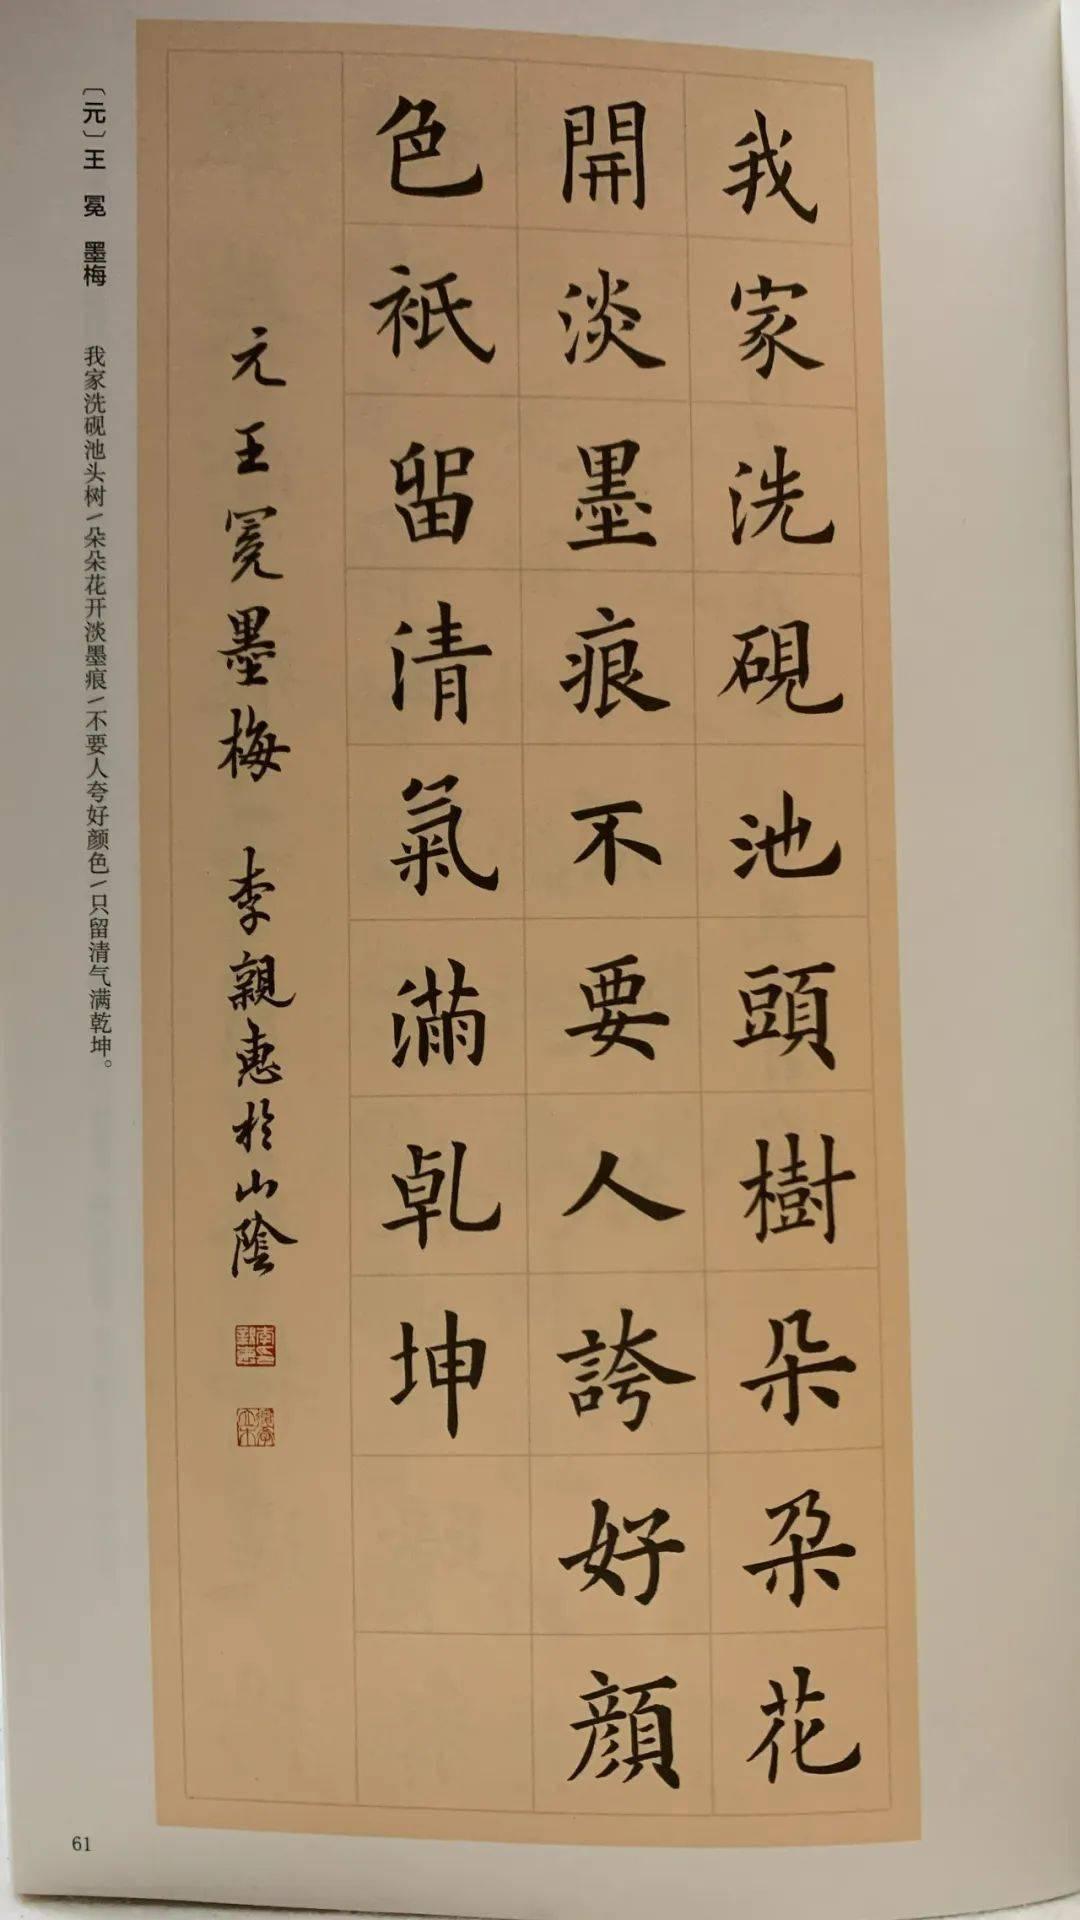 我家洗硯池頭樹朵朵花
開淡墨痕不要人誇好顔
色祇留清氣滿乾坤
元王冕墨梅 李親惠於山陰
〔元〕王 冕 墨梅 我家洗砚池头树/朵朵花开淡墨痕/不要人夸好颜色/只留清气满乾坤。
61